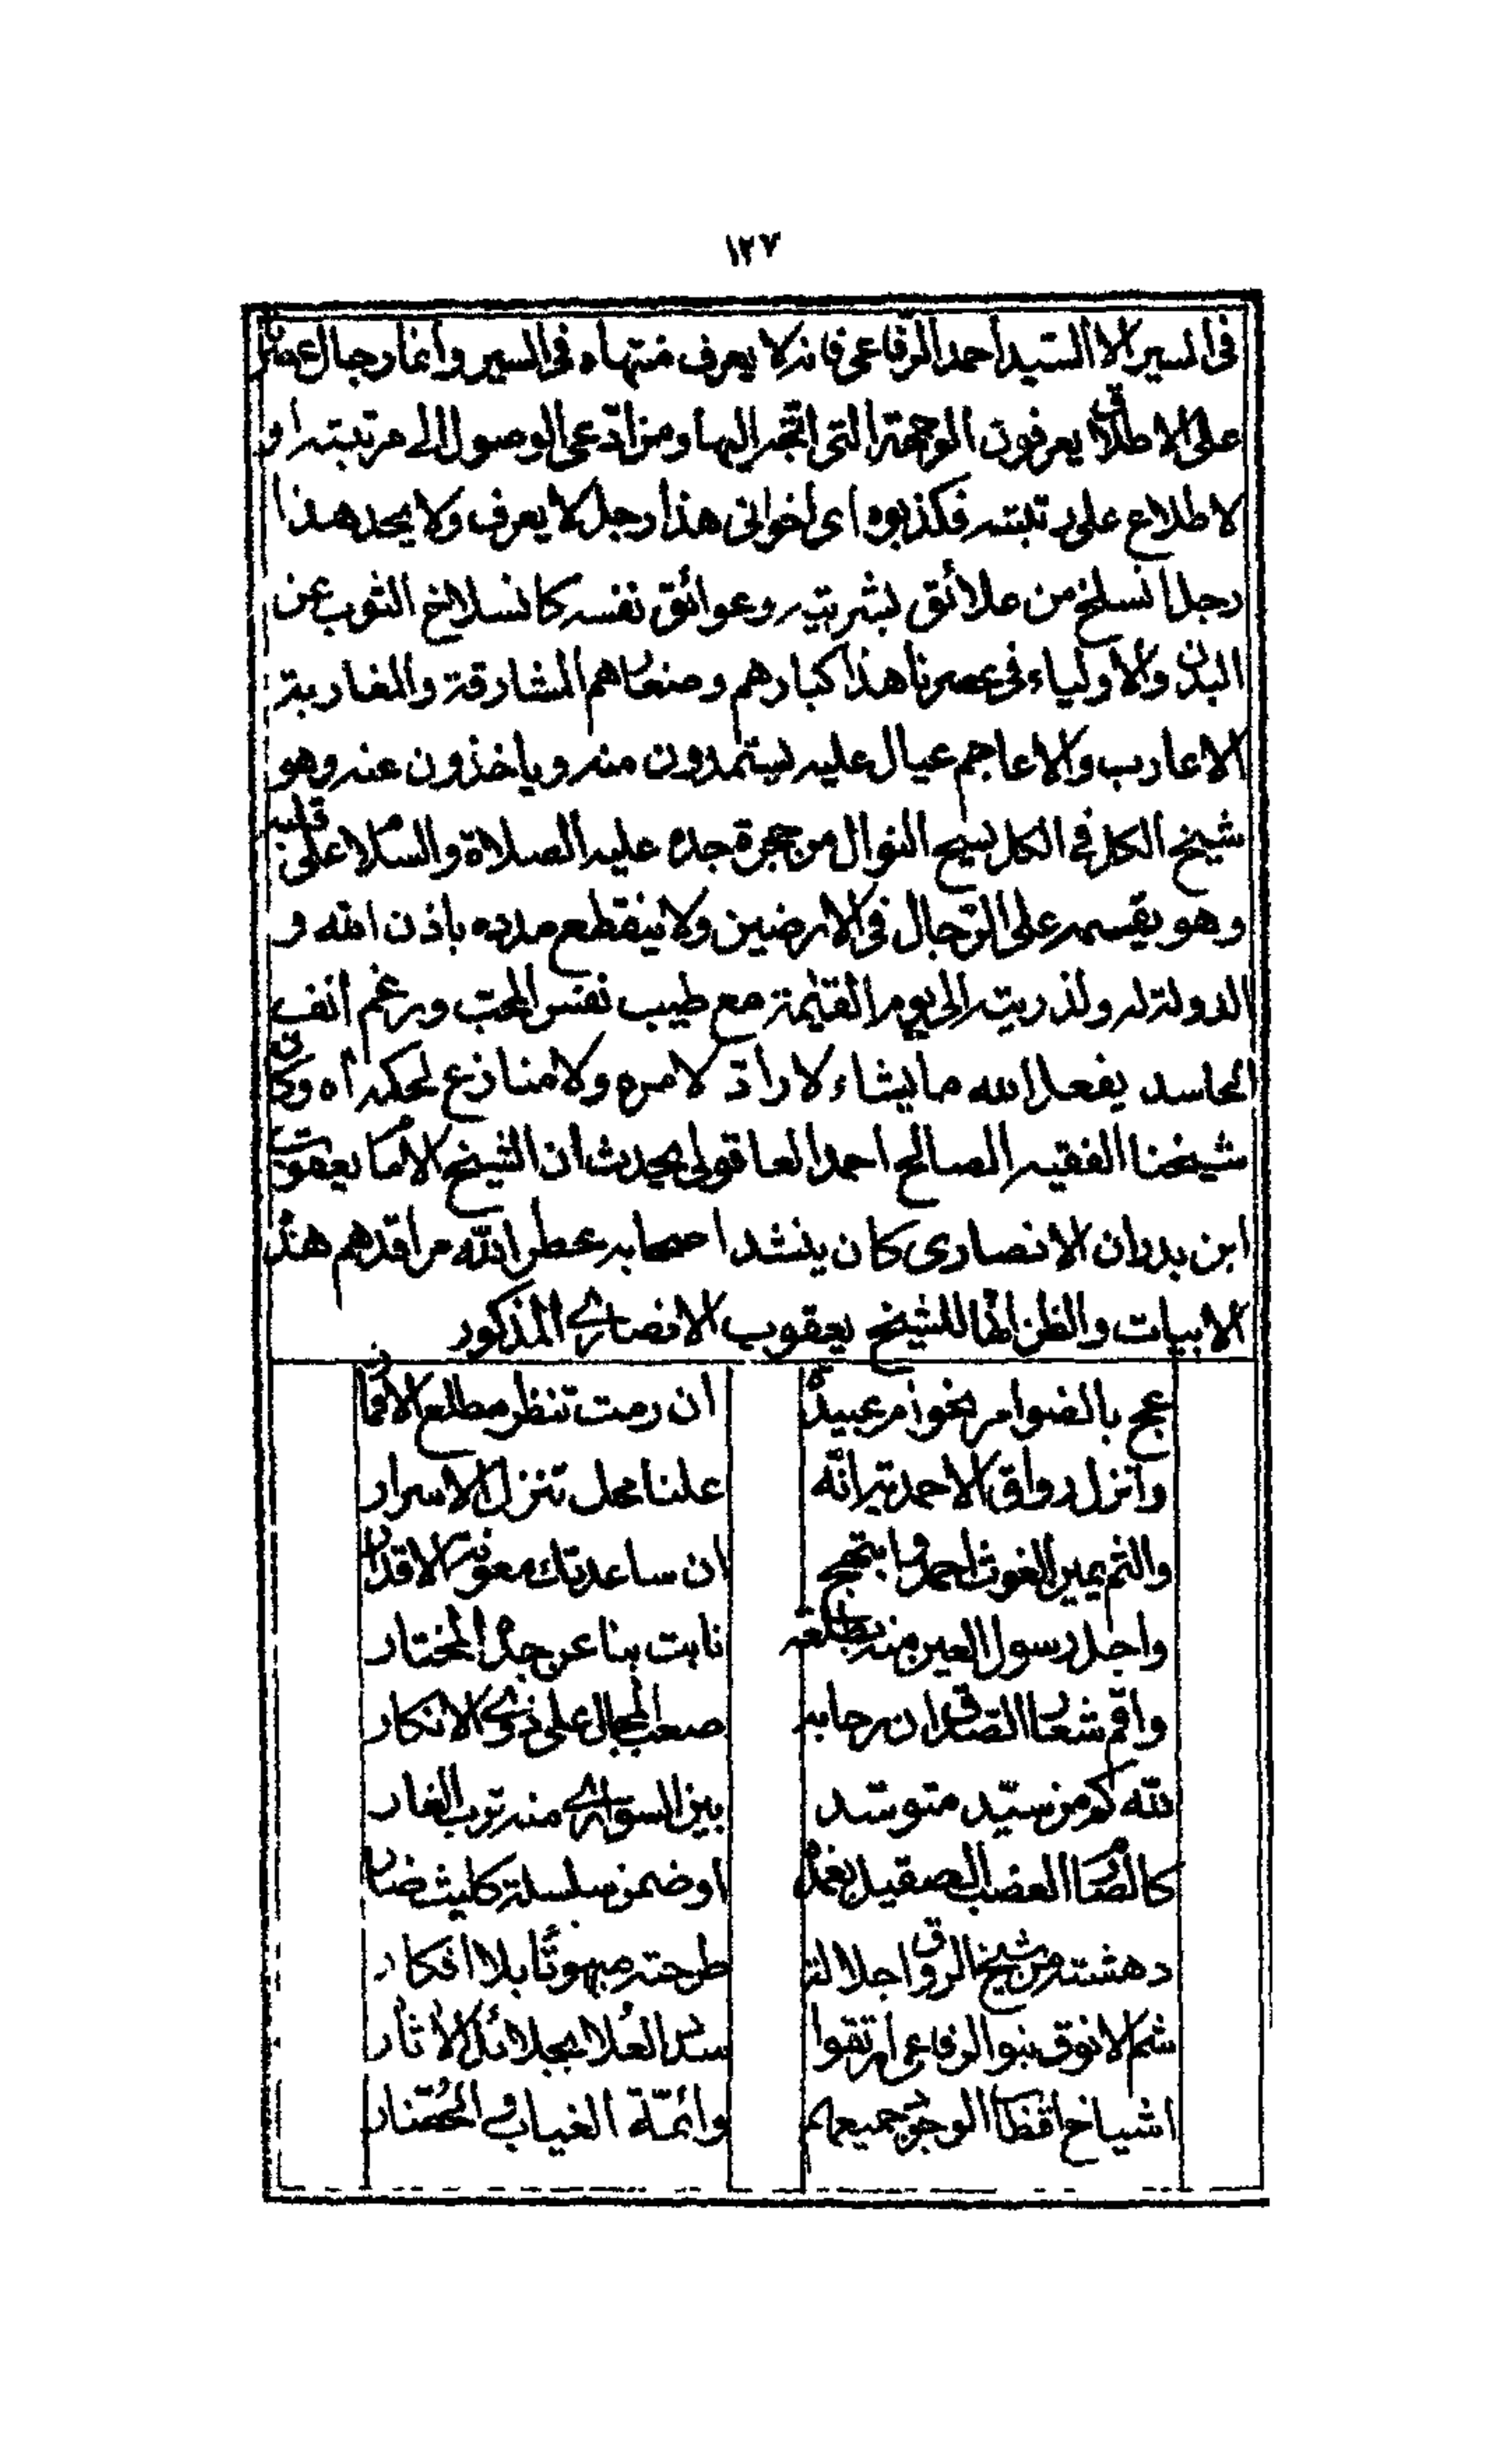 ١٢٧
في السير الا السيد احمد الرفاعي فانه لا يعرف منتهاه في السير وانما رجال عصرنا
على الاطلاق يعرفون الوجهة التي اتجه اليها ومن ادّعى الوصول الى مرتبته او
لاطلاع على رتبته فكذبوه اى اخوانى هذا رجل لا يعرف ولا يحد هذا
رجل انسلخ من علائق بشريته وعوائق نفسه كانسلاخ الثوب عن
البدن والاولياء في عصرنا هذا كبارهم وصغارهم المشارقة والمغاربة
الاعارب والاعاجم عيال عليه يستمدون منه وياخذون عنه وهو
شيخ الكل في الكل يسيح النوال من حجرة جده عليه الصلاة والسلام على قلبه
وهو يقسمه على الرّجال في الارضين ولا ينقطع مدده باذن الله و
الدولة له ولذريته الى يوم القيمة مع طيب نفس المحب ورغم انف
الحاسد يفعل الله ما يشاء لا رادّ لامره ولا منازع لحكمه اه وكان
شيخنا الفقيه الصالح احمد العاقولى يحدث ان الشيخ الامام يعقوب
ابن بدران الانصارى كان ينشد اصحابه عطر الله مراقدهم هذه
الابيات والظن انها للشيخ يعقوب الانصاري المذكور
عج بالضوامر نحو ام عبيدة ان رمت تنظر مطلع الاقمار
وانزل رواق الاحمدية انّه علنا محل تنزل الاسرار
والثم يمين الغوث احمد وابتهج ان ساعدتك معونة الاقدار
واجل رسول العين منه بطلعة نابت بنا عن جده المختار
واقم شعار الصدق ان رحابه صعب المجال على ذوي الانكار
لله كم من سيّد متوسّد بين السواري منه ترب الغار
كالصارم العضب الصقيل بغمده او ضمن سلسلة كليث ضار
دهشته من شيخ الرواق جلالة طرحته مبهوتًا بلا افكار
شم الانوف بنو الرفاعى ارتقوا سدر العُلا بجلائل الاثار
اشياخ اقطاب الوجود جميعهم وائمّة الغياب والحُضّار